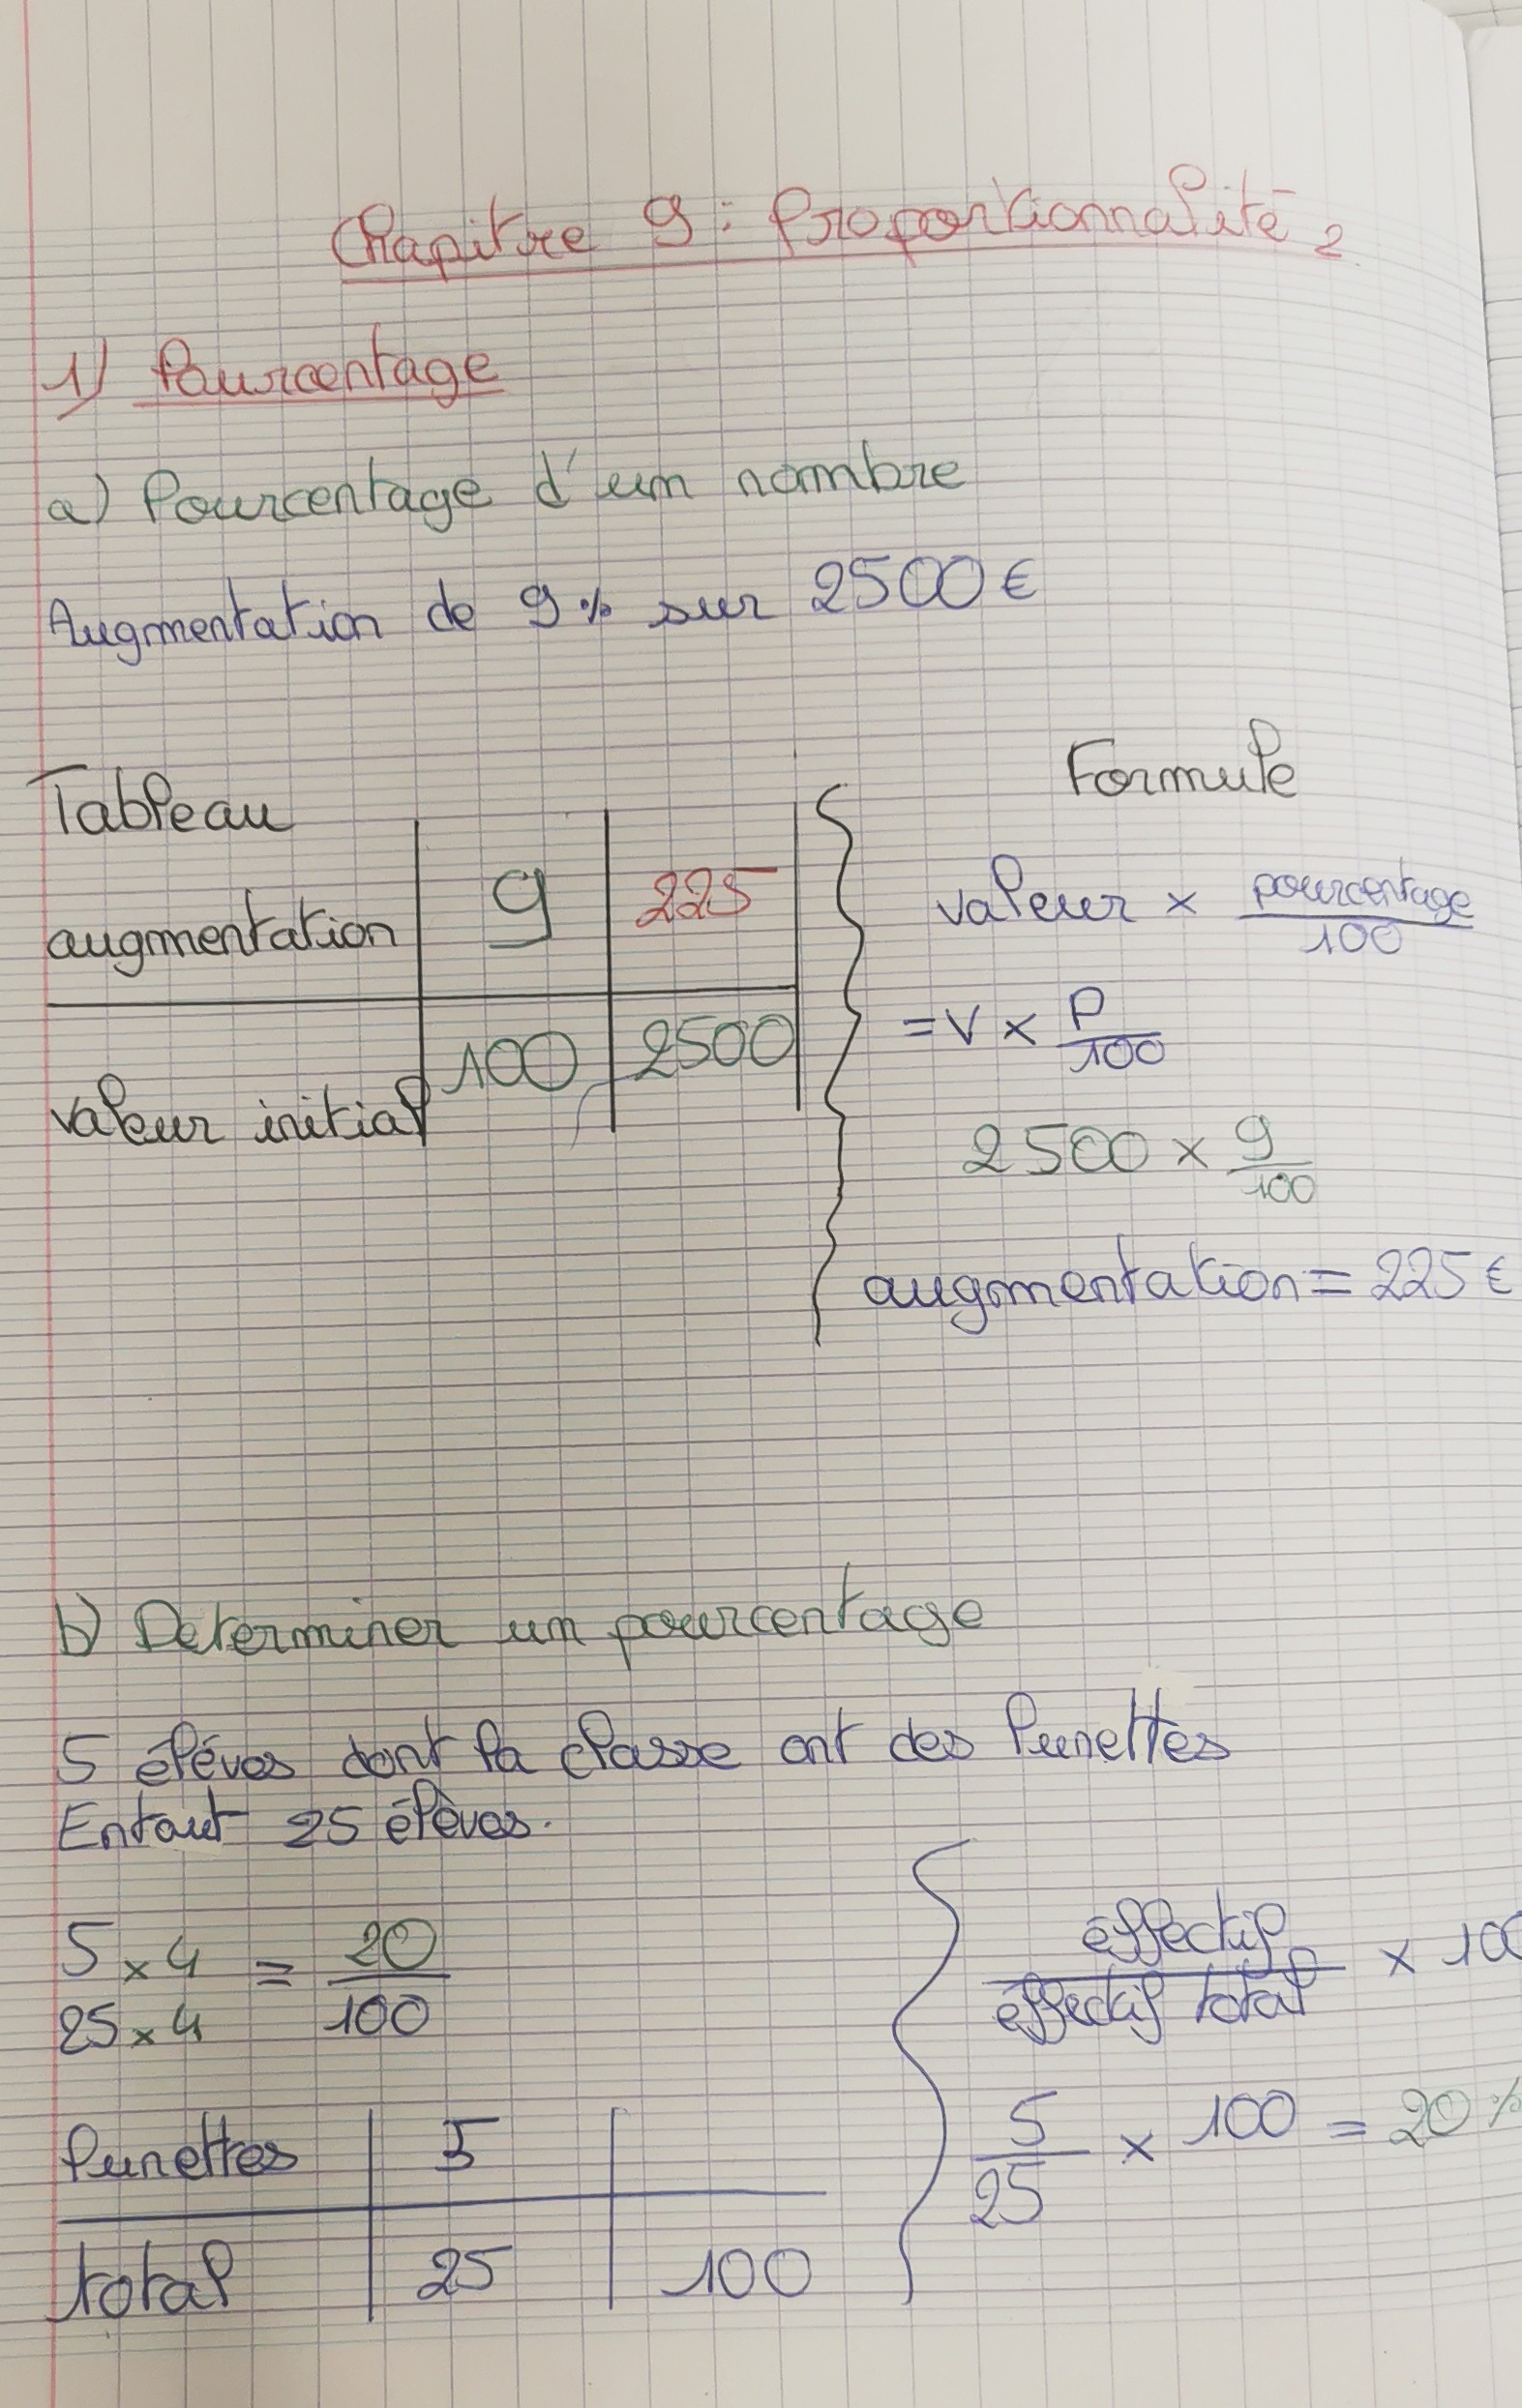 Chapitre 9 : Proportionnalité 2
1) Pourcentage
a) Pourcentage d'un nombre
Augmentation de 9% sur 2500€
Tableau
augmentation 9 225
valeur initial 100 2500
Formule
valeur × pourcentage
100
= V × P
100
2500 × 9
100
augmentation = 225€
b) Determiner un pourcentage
5 éléves dont la classe ont des lunettes
Entout 25 élèves.
5 × 4 = 20
25 × 4 100
lunettes 5
total 25 100
éffectif × 100
éffectif total
5 × 100 = 20%
25